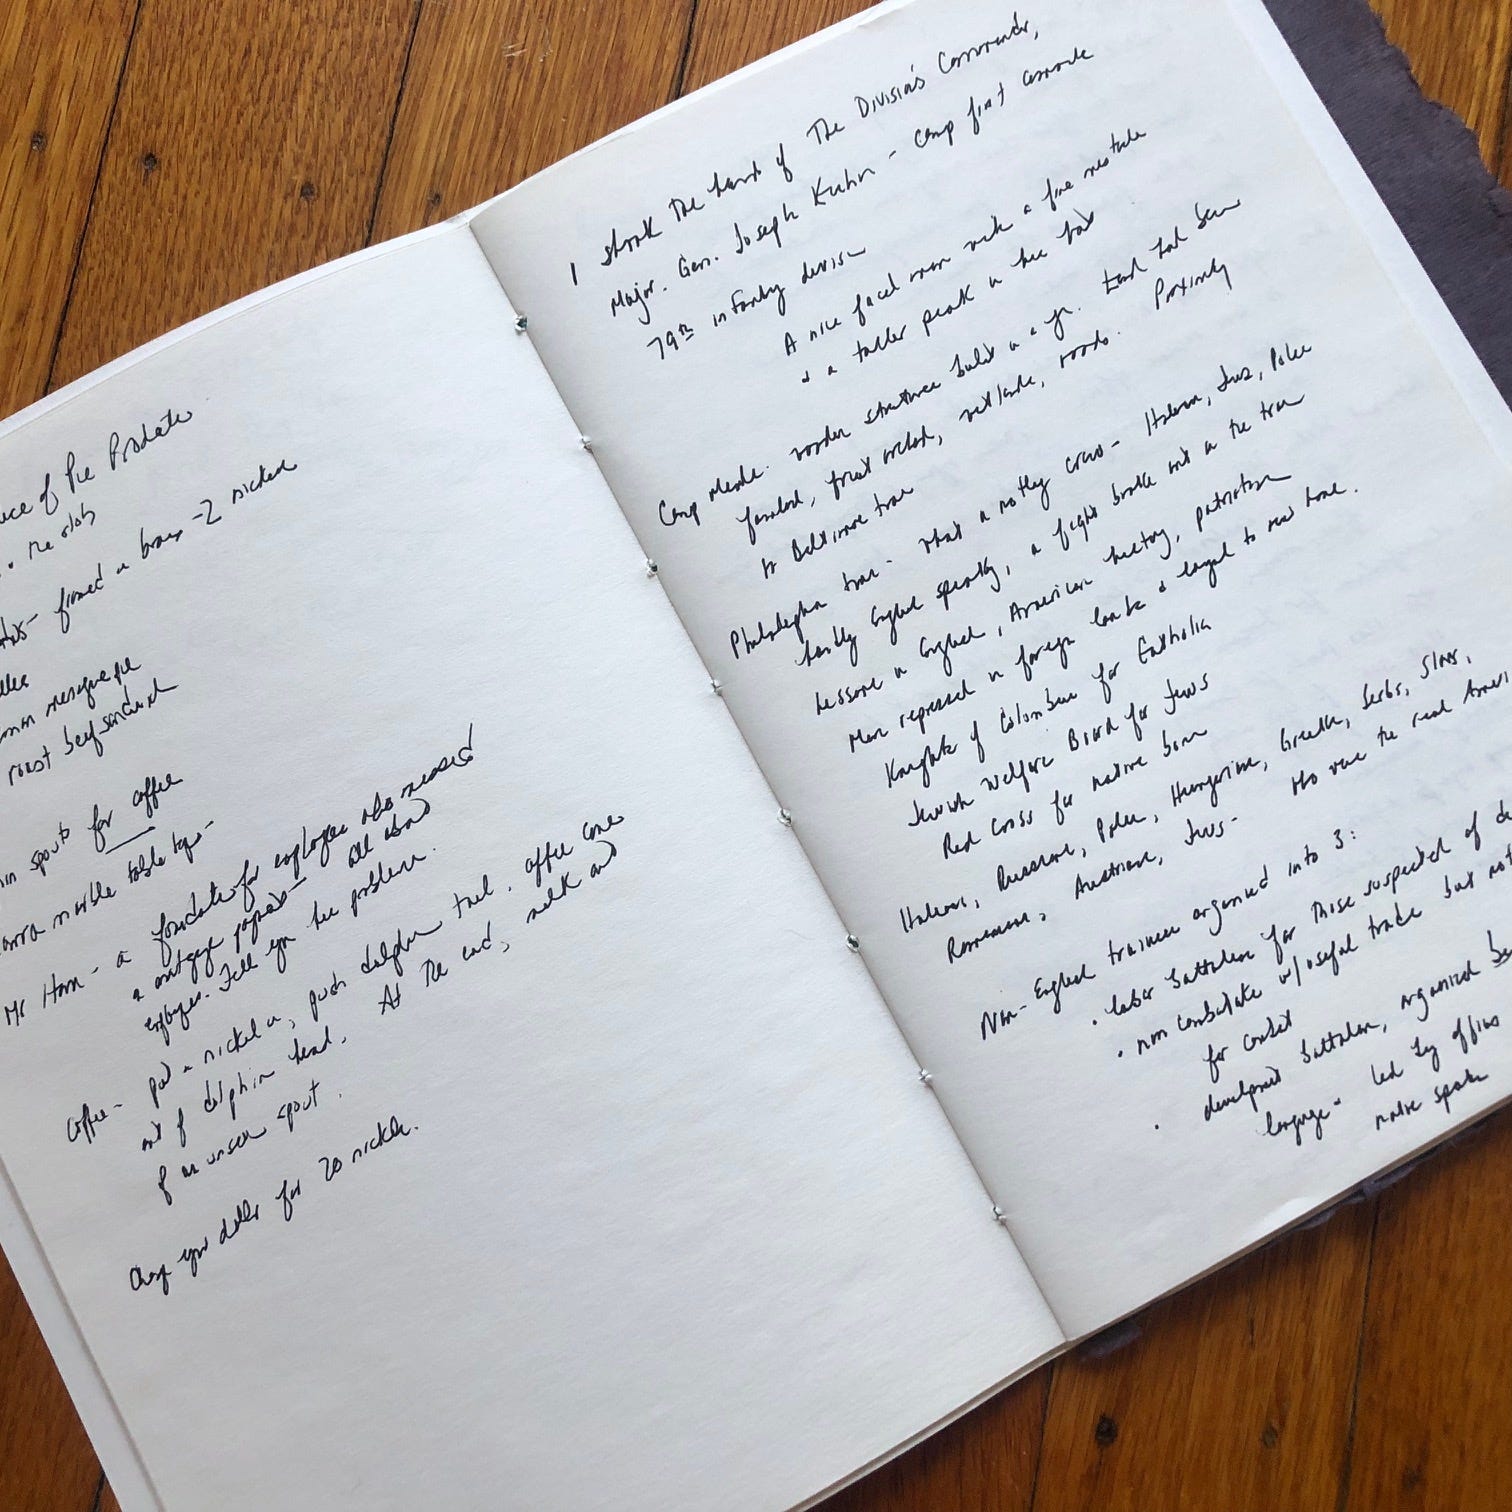 of Pie
the slots
formed a brass - 2 nickels
meringue pie
roast beef sandwich
spouts for coffee
marble table tops -
Mr Horn - a foundation for employees who needed
a mortgage payment - all about
employees. Tell you the problem.
Coffee - put a nickel in, push dolphin tail. coffee comes
out of dolphin head. At the end, milk and
of an unseen spout.
Change your dollar for 20 nickels.
I shook the hand of The Division's Commander,
Major. Gen. Joseph Kuhn - Camp first
79th infantry division
A nice faced man with a fine mustache
& a taller peak in his hat
Camp Meade. wooden structures built in a yr. Land had been
farmland, fruit orchard, wetlands, roads. Proximity
to Baltimore train
Philadelphia train - What a motley crew - Italians, Jews, Poles
hardly English speaking, a fight broke out on the train
Lessons in English, American history, patriotism
Men in foreign & loyal to real home.
Knights of Columbus for Catholics
Jewish Welfare Board for Jews
Red Cross for native born
Italians, Russians, Poles, Hungarians, Greeks, Serbs, Slavs,
Austrians, Jews - Who were the real
Non-English trainees organized into 3:
• labor battalion for those suspected of
• non combatate w/ useful trade but not
for combat
• development battalion, organized
language - led by officers
native